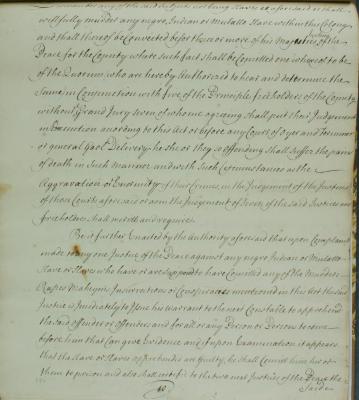 any of the said
willfully murder any negro, Indian or Mulatto Slave within this Colony
and shall thereof be Convicted before three or more of his Majesties
Justices of the
Peace for the County where such fact shall be Comitted one whereof to be
of the Quorum who are hereby Authorized to hear and determine the
Same in Conjunction with five of the Principle freeholders of the County
without Grand Jury seven of whome agreeing shall put their Judgement
in Execution according to this Act or before any Court of Oyer and Terminer
or general Gaol Delivery he she or they so offending shall suffer the pains
of death in Such Manner and with Such Circumstances as the
Aggravation or Enormity of their Crimes, in the Judgement of the Justices
of those Courts aforesaid or as in the Judgement of Seven of the said Justices and
freeholders shall merritt and require.
Be it further Enacted by the Authority aforesaid that upon Complaint
made to any one Justice of the Peace against any negro Indian or Mulatto
Slave or Slaves who have or are supposed to have Comitted any of the Murders
Rapes Maheym Insurrections or Conspiracies mentioned in this Act the said
Justice is Imediately to Issue his warrant to the next Constable to apprehend
the said offender or offenders and for all or any Person or Persons to come
before him that Can give Evidence and if upon Examination it appears
that the Slave or Slaves apprehended are guilty, he shall Commit him her or
them to prison and also shall certifie to the two next Justices of the Peace the
Said
40